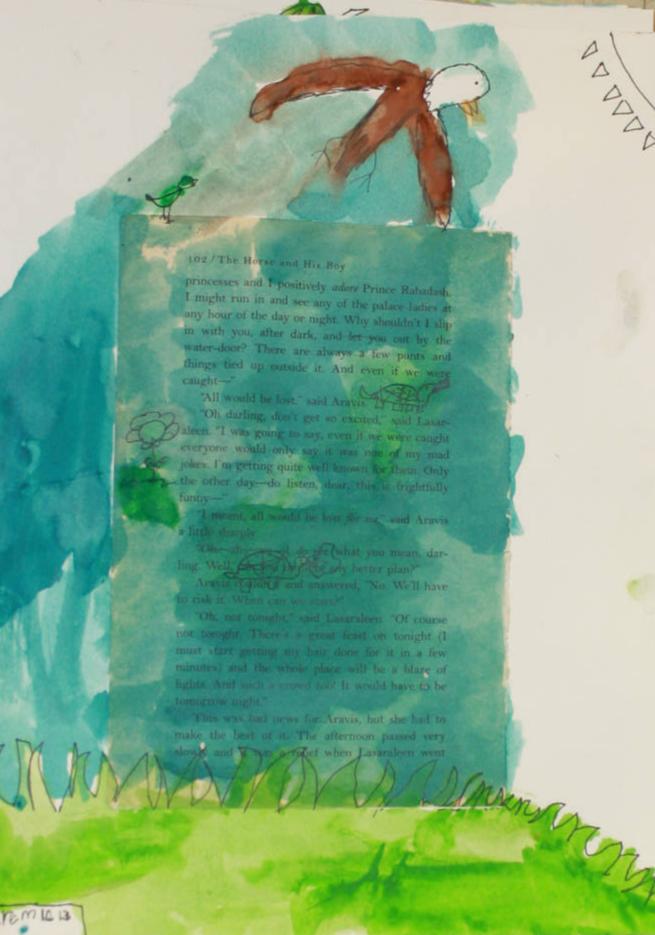 102 / The Horse and His Boy
princesses and I positively adore Prince Rabadash.
I might run in and see any of the palace ladies at
any hour of the day or night. Why shouldn't I slip
in with you, after dark, and let you out by the
water-door? There are always a few punts and
things tied up outside it. And even if we were
caught—"
"All would be lost," said Aravis.
"Oh darling, don't get so excited," said Lasar-
aleen. "I was going to say, even if we were caught
everyone would only say it was one of my mad
jokes. I'm getting quite well known for them. Only
the other day—do listen, dear, this is frightfully
funny—"
"I meant, all would be lost for me," said Aravis
a little sharply.
"Oh—ah— do what you mean, dar-
ling. Well, any better plan?"
Aravis and answered, "No. We'll have
to risk it. When can we start?"
"Oh, not tonight," said Lasaraleen. "Of course
not tonight. There's a great feast on tonight (I
must start getting my hair done for it in a few
minutes) and the whole place will be a blaze of
lights. And such a crowd too! It would have to be
tomorrow night."
This was bad news for Aravis, but she had to
make the best of it. The afternoon passed very
slowly and it was a relief when Lasaraleen went